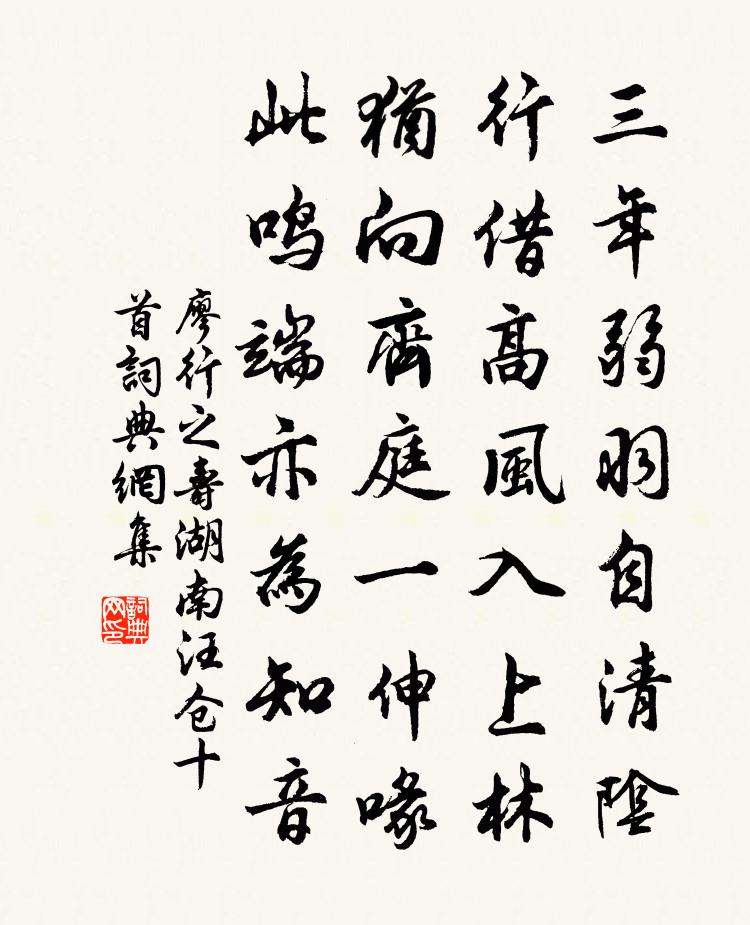 三年弱羽自清陰
行借高風入上林
猶向齊庭一伸喙
此鳴端亦為知音
廖行之壽湖南汪仓十
首詞典網集
詞典
网印